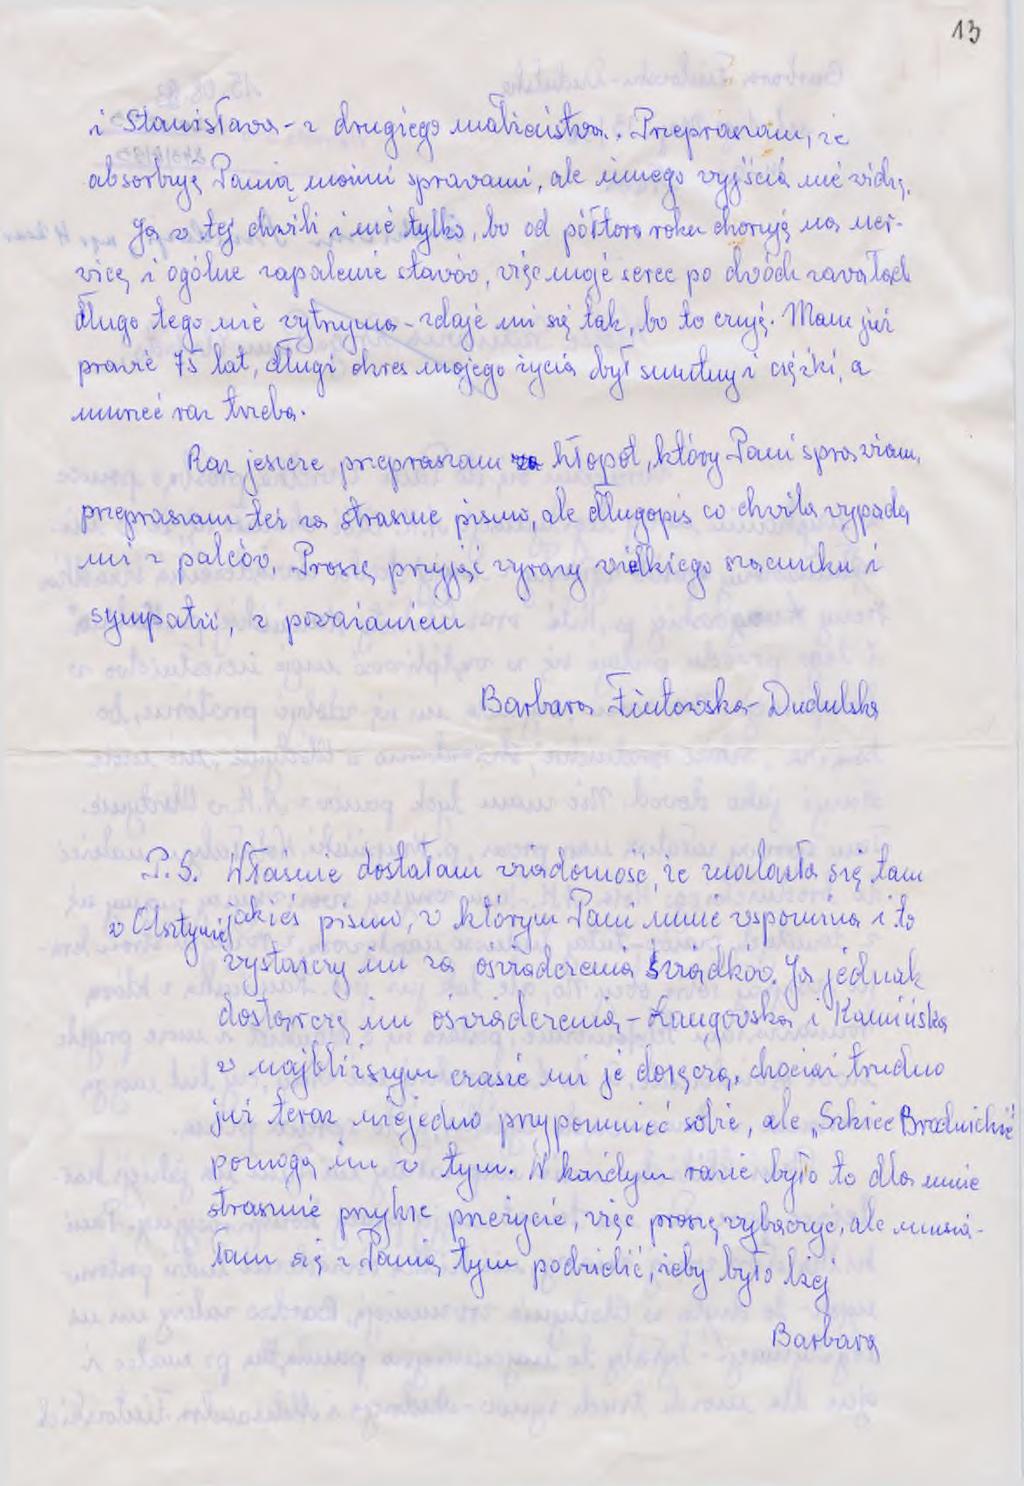 13
i Stanisława - z drugiego małżeństwa. Przepraszam, że
absorbuję Panią moimi sprawami, ale innego wyjścia nie widzę.
Ja w tej chwili i nie tylko, bo od półtora roku choruję na ner-
wicę i ogólne zapalenie stawów, więc moje serce po dwóch zawałach
długo tego nie wytrzyma - zdaje mi się tak, bo to czuję. Mam już
prawie 75 lat, długi okres mojego życia był smutny i ciężki, a
umrzeć raz trzeba.
Raz jeszcze przepraszam za kłopot, który Pani sprawiam,
przepraszam też za straszne pismo, ale długopis co chwila wypada
mi z palców. Proszę przyjąć wyrazy wielkiego szacunku i
sympatii, z poważaniem
Barbara Fiutowska-Dudulska
P.S. Właśnie dostałam wiadomość, że znalazła się tam
w Olsztynie jakieś pismo, w którym Pani mnie wspomina i to
wystarczy mi za oświadczenia świadków. Ja jednak
dostarczę im oświadczenia - Łangowska i Kamińska
w najbliższym czasie mi je doręczą, chociaż trudno
już teraz niejedno przypomnieć sobie, ale „Szkice Brodnickie"
pomogą im w tym. W każdym razie było to dla mnie
strasznie przykre przeżycie, więc proszę wybaczyć, ale musia-
łam się z Panią tym podzielić, żeby było lżej
Barbara